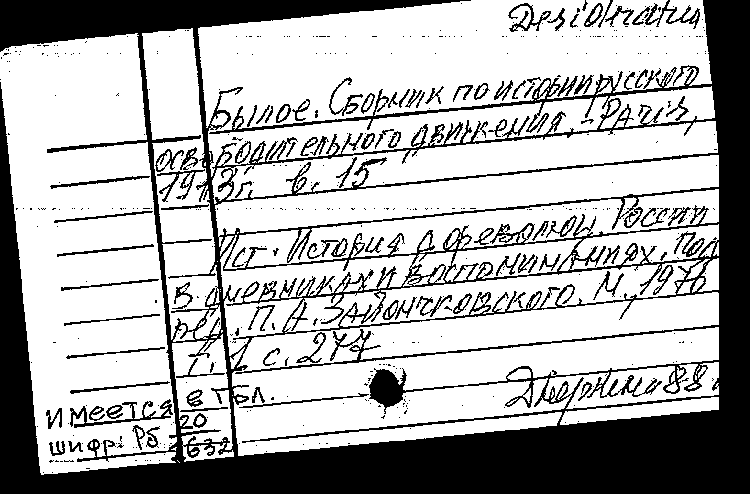 Desiderata
Былое. Сборник по истории русского
освободительного движения, Paris,
1913г. в. 15
Ист. История дореволюц. России
в дневниках и воспоминаниях. Под
ред. П.А. Зайончковского. М., 1976
т. 1 с. 277
88
имеется в ГБЛ.
шифр: Рб 20
2632